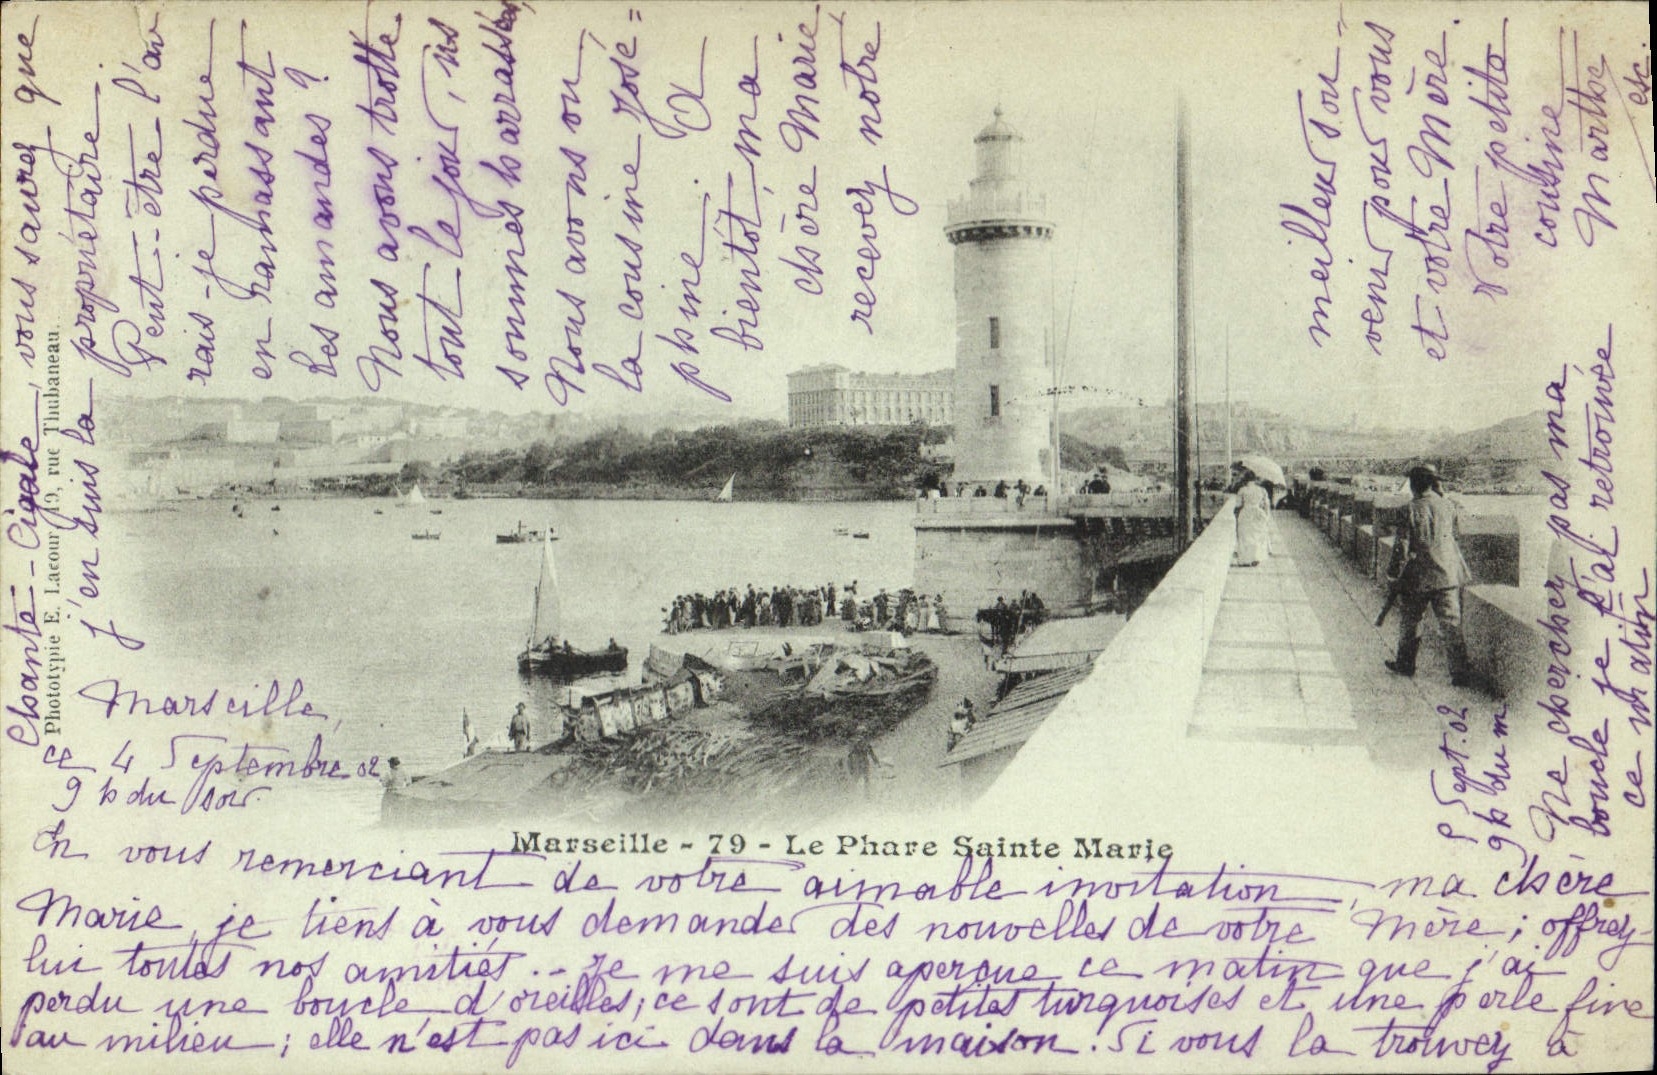 Marseille,
ce 4 Septembre 02
9 h du soir.
En vous remerciant de votre aimable invitation, ma chère
Marie, je tiens à vous demander des nouvelles de votre Mère ; offrez-
lui toutes nos amitiés. -- Je me suis aperçue ce matin que j'ai
perdu une boucle d'oreilles ; ce sont de petites turquoises et une perle fine
au milieu ; elle n'est pas ici dans la maison. Si vous la trouvez à
Chante-Cigale, vous saurez que
j'en suis la propriétaire.
Peut-être l'au
rais-je perdue
en ramassant
les amandes ?
Nous avons trotté
tout le jour, ns
sommes harrassées,
Nous avons vu
la cousine José=
phine.
A
bientôt, ma
chère Marie
recevez notre
meilleur sou-
venir pour vous
et votre Mère.
Votre petite
cousine
Marthe
esc.
5 Sept. 02
9h du m
Ne cherchez pas ma
boucle je l'ai retrouvée
ce matin
Phototypie E. Lacour 19, rue Thubaneau.
Marseille - 79 - Le Phare Sainte Marie